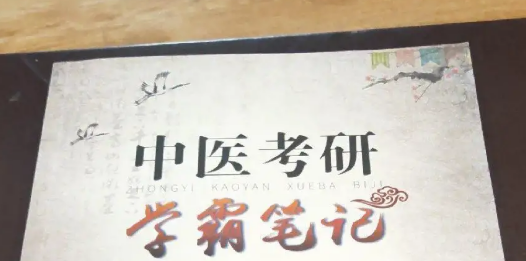 中医考研
ZHONGYI KAOYAN XUEBA BIJI
学霸笔记